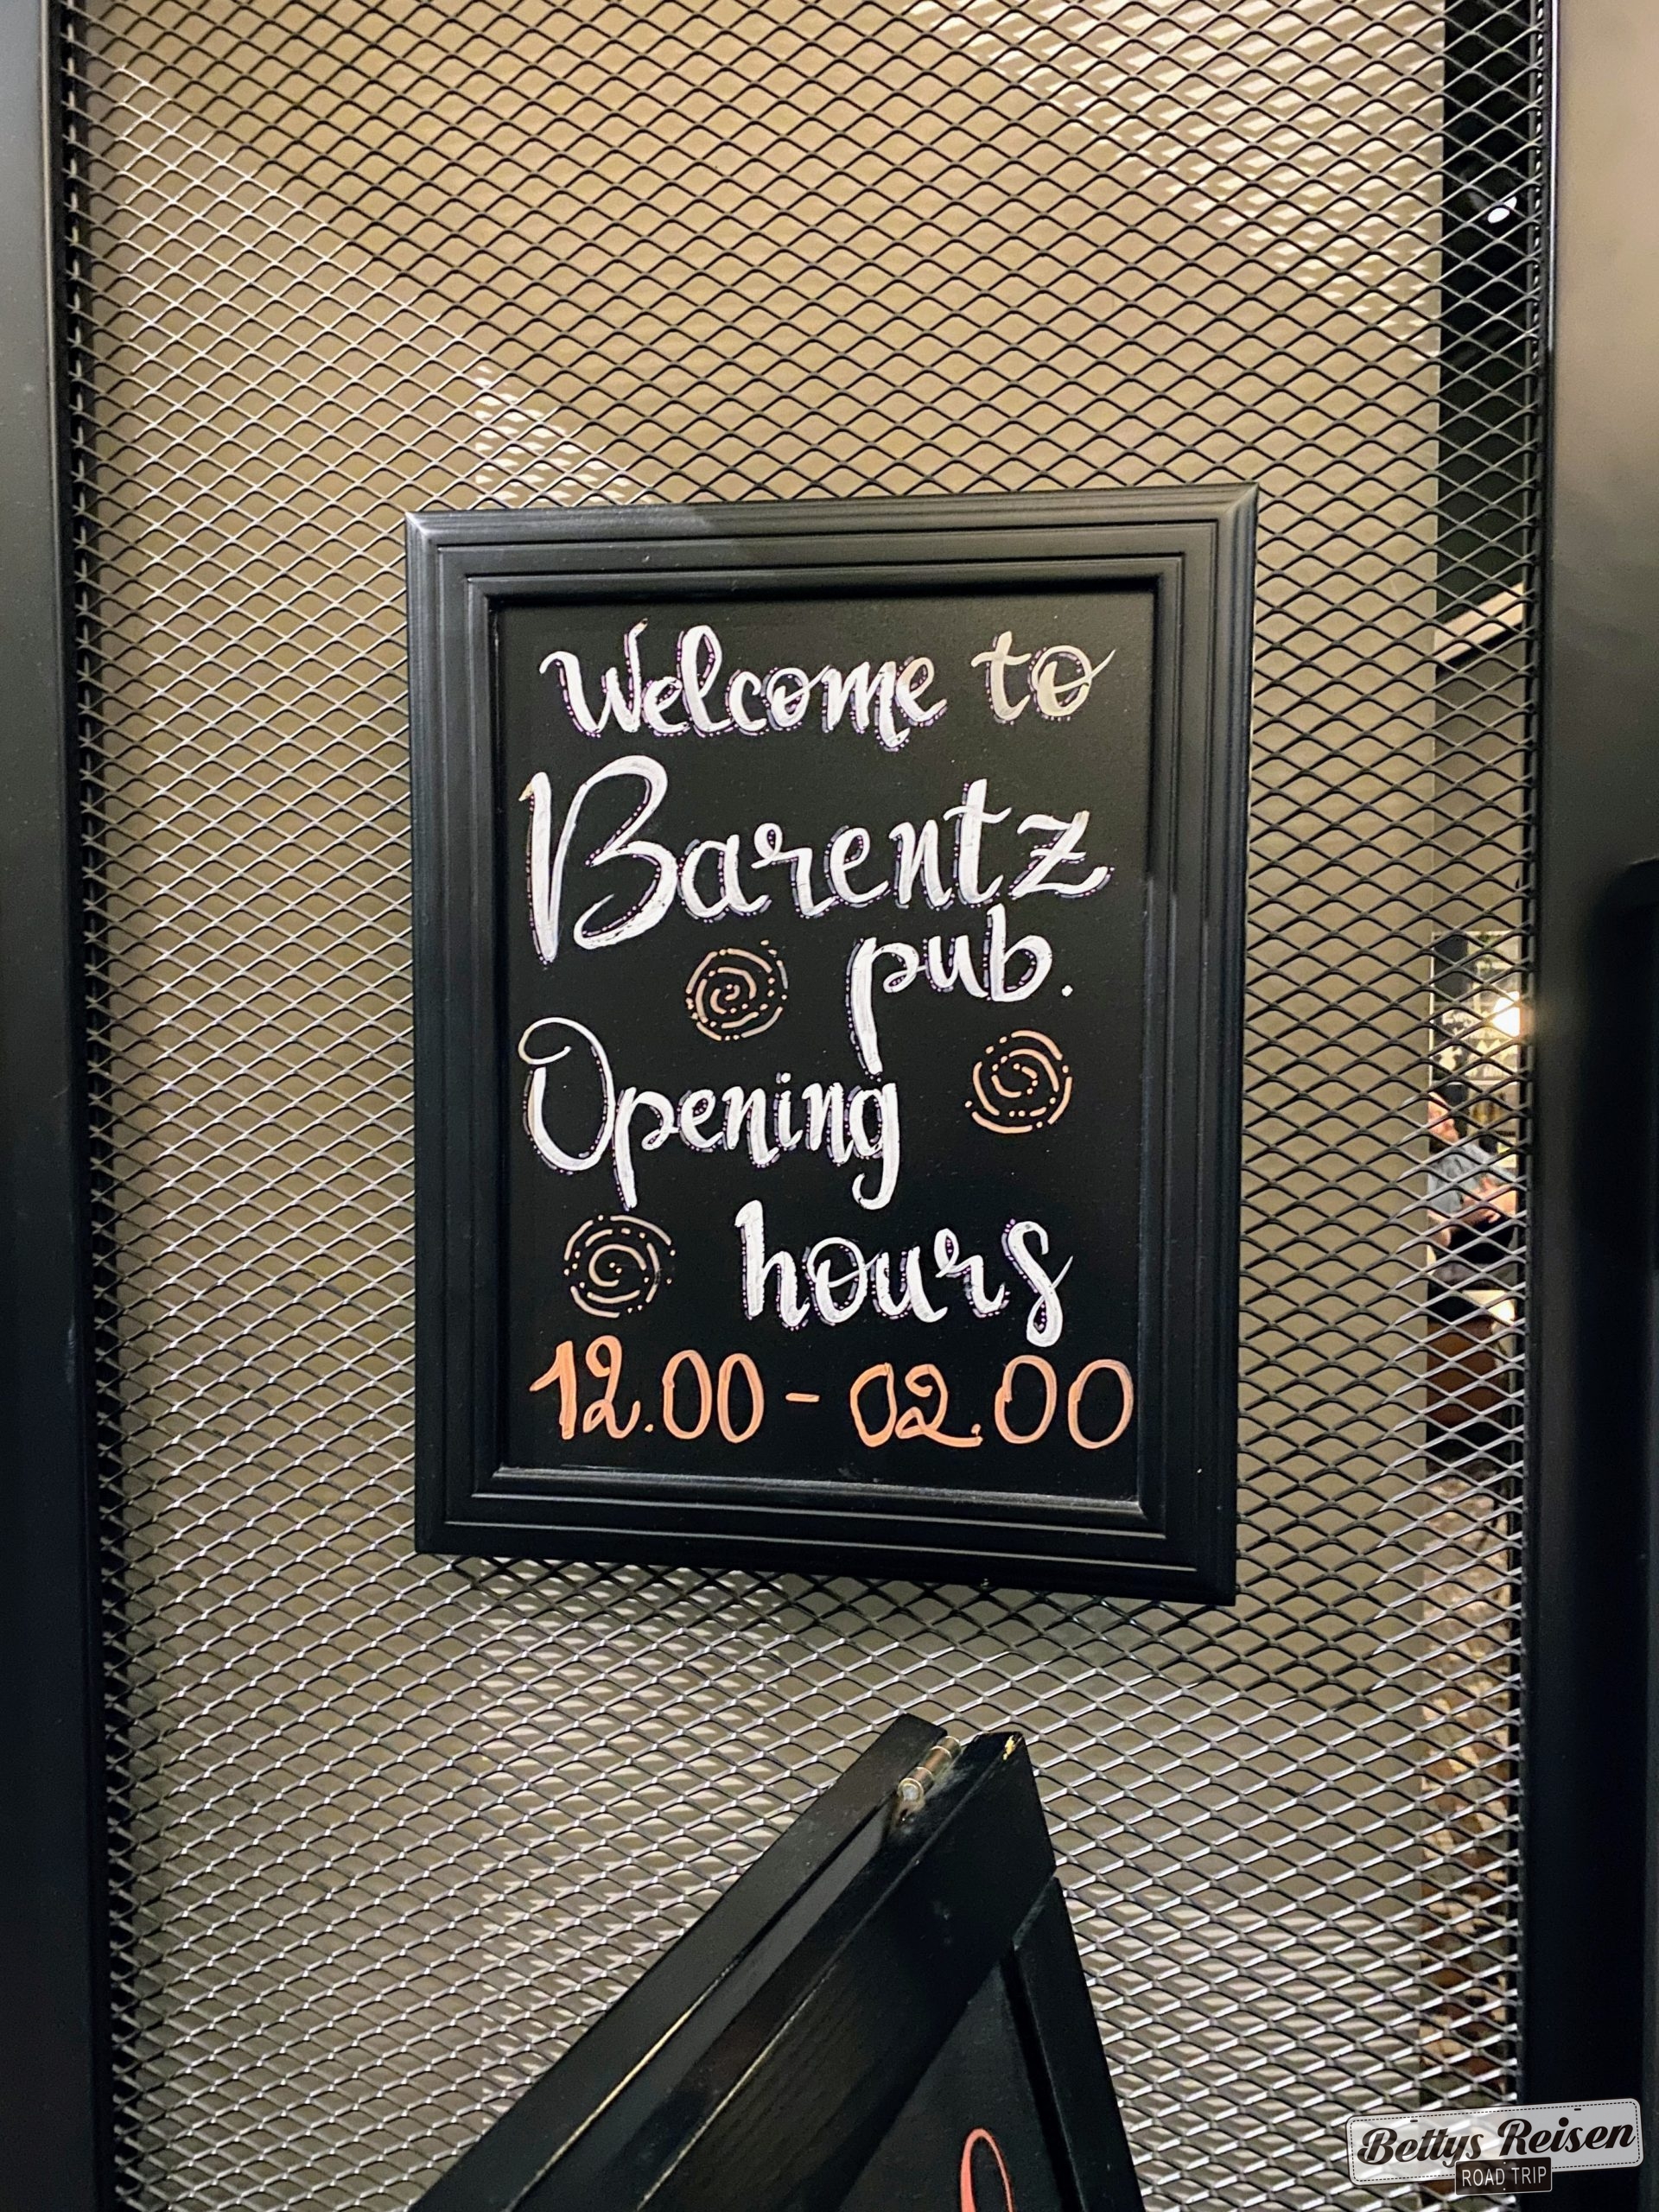 Welcome to
Barentz
pub.
Opening
hours
12.00 - 02.00
Bettys Reisen
ROAD TRIP